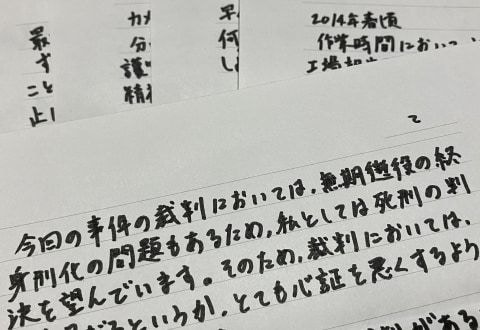 最
ず
こと
止
カメ
分
護
精
早
何
し
2014年春頃
作業時間において
工場担当
て
今回の事件の裁判においては、無期懲役の終
身刑化の問題もあるため、私としては死刑の判
決を望んでいます。そのため、裁判においては、
というか、とても心証を悪くするよう
がある